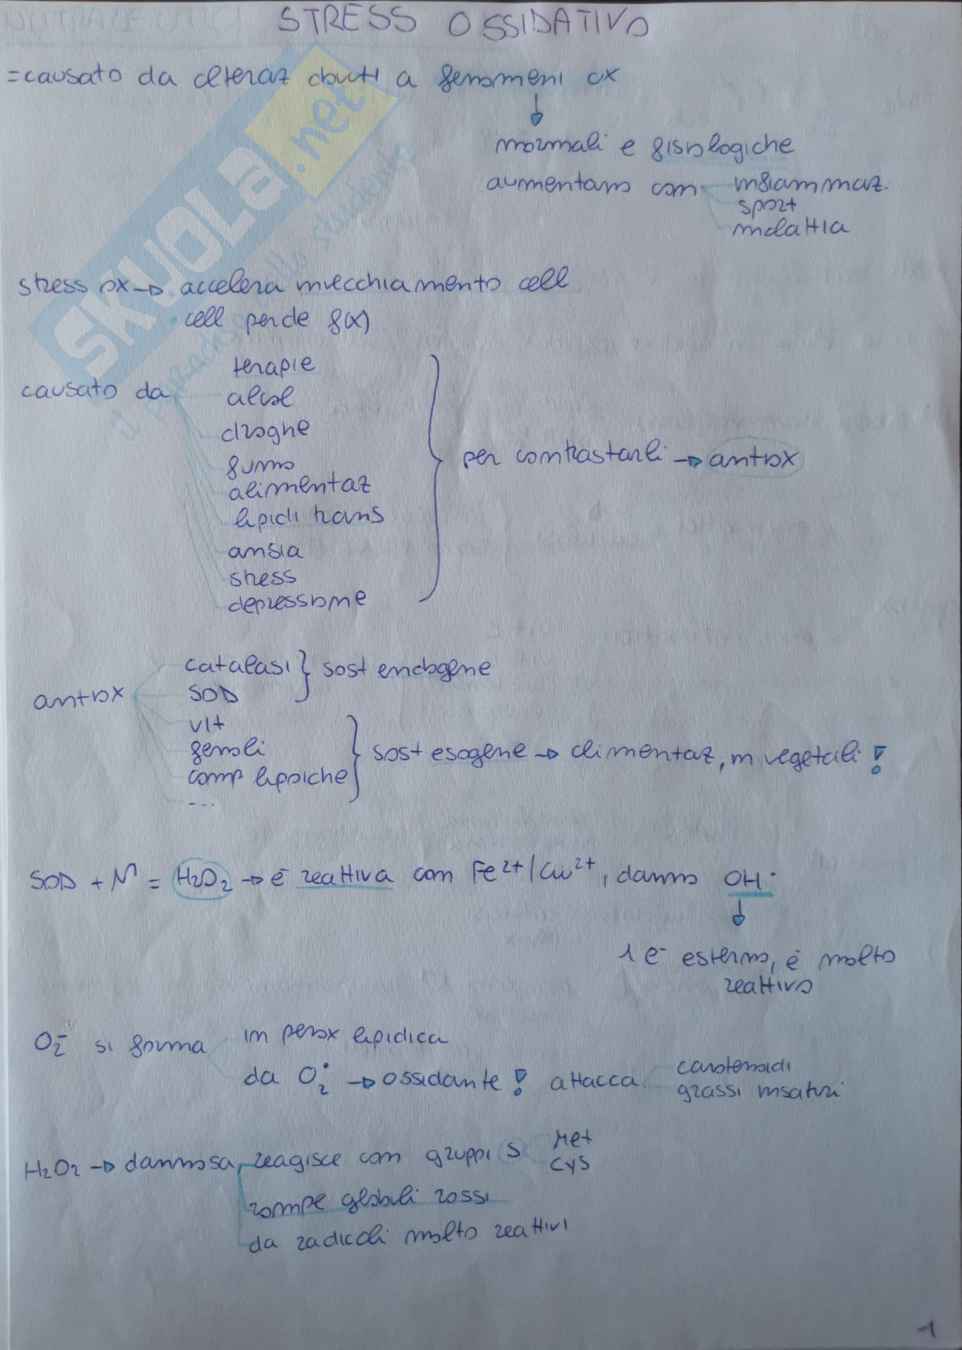 STRESS OSSIDATIVO
= causato da alteraz dovuti a fenomeni ox
normali e fisiologiche
aumentano con infiammaz.
sport
malattia
stress ox → accelera invecchiamento cell
cell perde f(x)
causato da
terapie
alcol
droghe
fumo
alimentaz
lipidi trans
ansia
stress
depressione
per contrastarli → antiox
antiox
catalasi } sost endogene
SOD
vit
fenoli
comp lipoiche } sost esogene → alimentaz, in vegetali !
...
SOD + = H2O2 → è reattiva con Fe2+/Cu2+, danno OH•
1 e- esterno, è molto
reattivo
O2- si forma
in perox lipidica
da O2• → ossidante! attacca
carotenoidi
grassi insaturi
H2O2 → dannosa, reagisce con gruppi S
Met
Cys
rompe globuli rossi
da radicali molto reattivi
1
SKUOLA.net